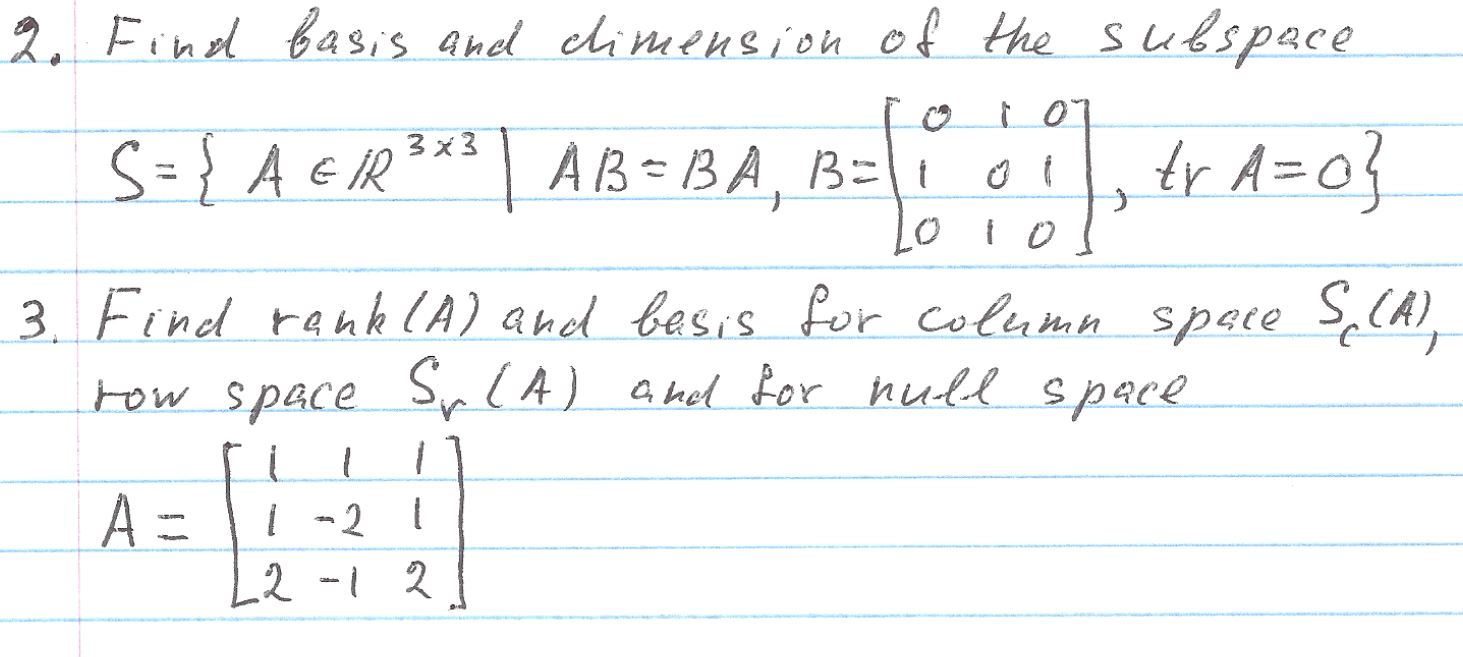 2. Find basis and dimension of the subspace
S = { A ∈ ℝ^{3×3} | AB = BA, B = [0 1 0; 1 0 1; 0 1 0], tr A = 0}
3. Find rank(A) and basis for column space S_c(A),
row space S_r(A) and for null space
A = [1 1 1; 1 -2 1; 2 -1 2]